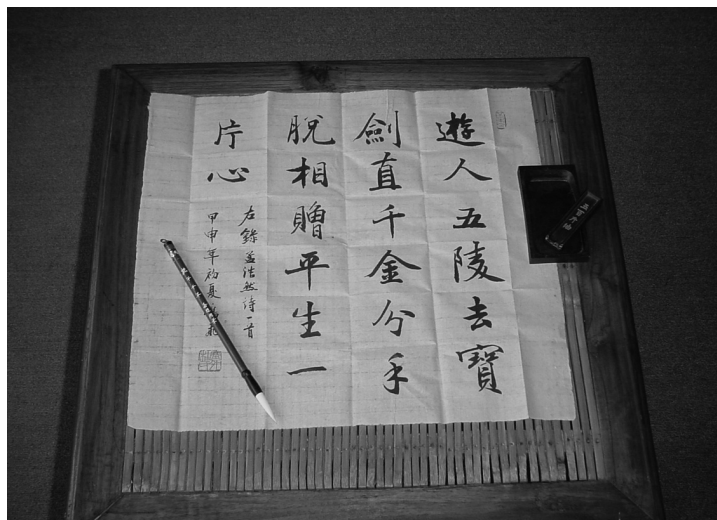 遊人五陵去寶
劍直千金分手
脫相贈平生一
片心
右錄孟浩然詩一首
甲申年初夏